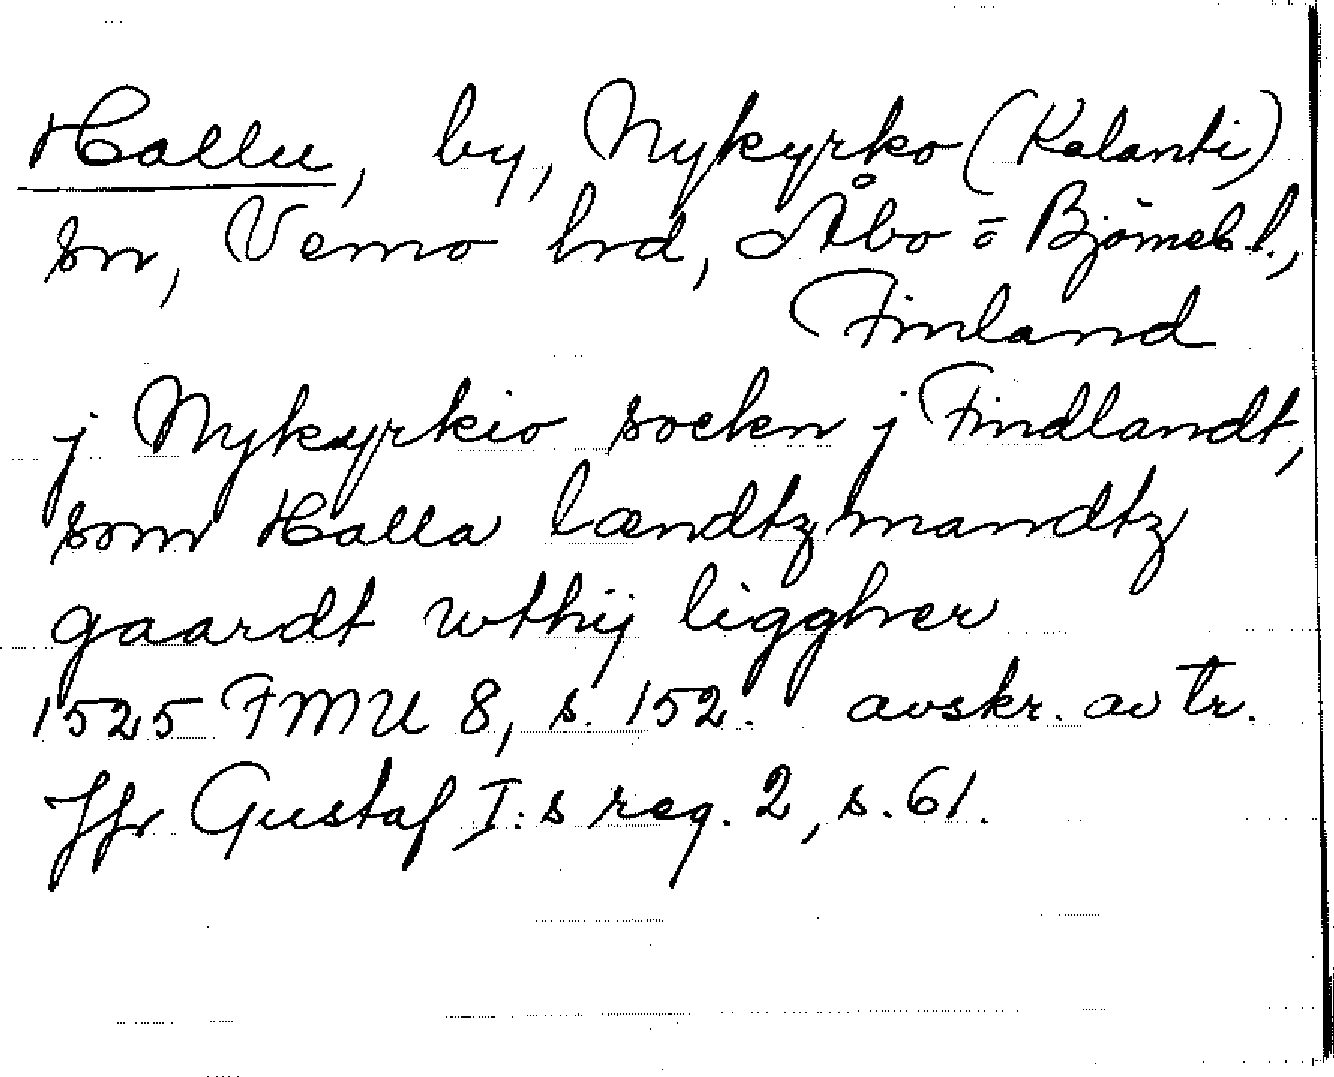 Hallu, by, Nykyrko (Kalanti)
sn, Vemo hd, Åbo = Björneb. l.,
Finland
j Nykyrkio sockn j Findlandt,
som Halla lændtzmandtz
gaardt wthij liggher
1525 FMU 8, s. 152. avskr. av tr.
Jfr Gustaf I:s reg. 2, s. 61.